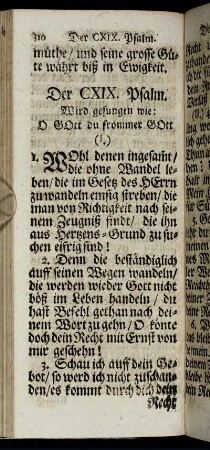 310 Der CXIX. Psalm.
müthe / und seine grosse Gü-
te währt biß in Ewigkeit.
Der CXIX. Psalm.
Wird gesungen wie:
O GOtt du frommer GOtt
(1.)
1. WOhl denen ingesamt /
die ohne Wandel le-
ben / die im Gesetz des HErrn
zu wandeln emsig streben / die
man von Richtigkeit nach sei-
nem Zeugniß findt / die ihn
aus Hertzens-Grund zu su-
chen eifrig sind!
2. Denn die beständiglich
auff seinen Wegen wandeln /
die werden wieder Gott nicht
böß im Leben handeln / du
hast Befehl gethan nach dei-
nem Wort zu gehn / O könte
doch dein Recht mit Ernst von
mir geschehn!
3. Schau ich auff dein Ge-
bot / so werd ich nicht zuschan-
den / es kommt durch dich dein
Recht